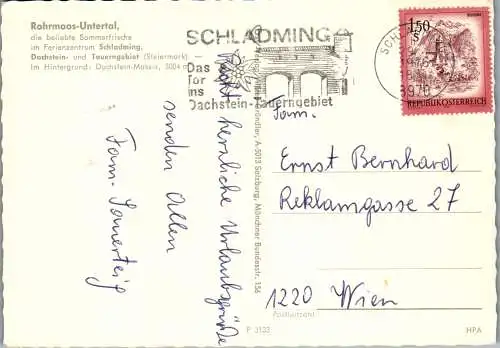 Rohrmoos-Untertal,
die beliebte Sommerfrische
im Ferienzentrum Schladming,
Dachstein- und Tauerngebiet (Steiermark)
Im Hintergrund: Dachstein-Massiv, 3004 m
SCHLADMING
Das
Tor
ins
Dachstein-Tauerngebiet
8970
1.50
REPUBLIK ÖSTERREICH
herrliche Urlaubsgrüße
senden Allen
Fam. Sauerteig
A-5013 Salzburg, Münchner Bundesstr. 156
Fam.
Ernst Bernhard
Reklamgasse 27
1220 Wien
Postleitzahl
P 3133
HPA